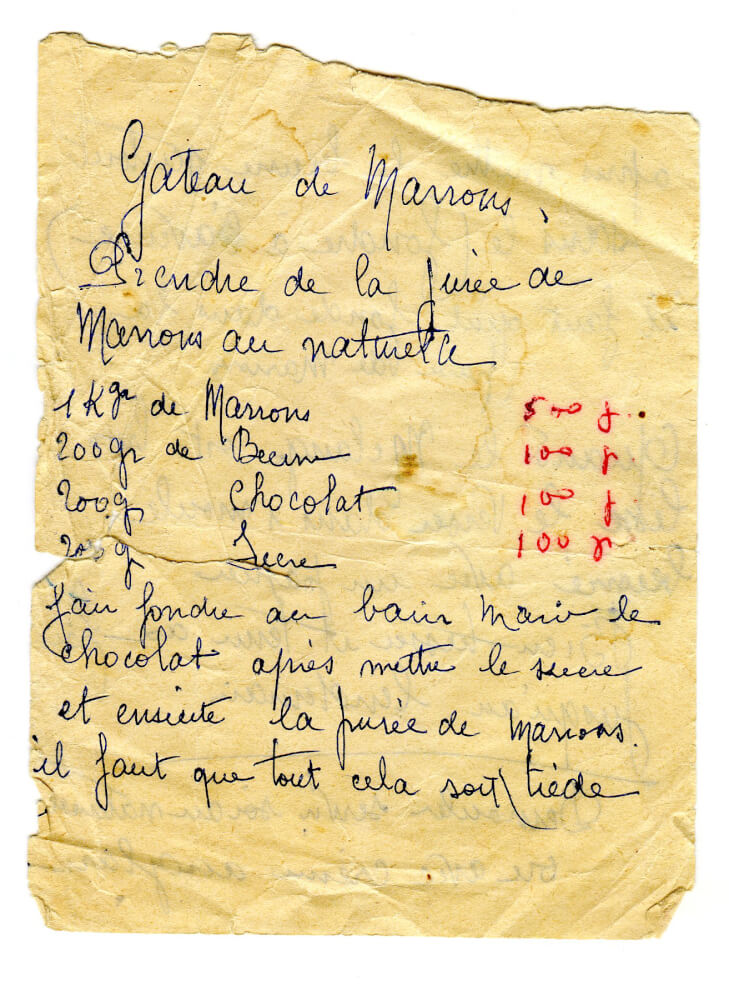 Gâteau de Marrons.
Prendre de la purée de
Marrons au naturelle
1 Kgr de Marrons 500 g.
200gr de Beurre 100 g
200g Chocolat 100 g
200g Sucre 100 g
fair fondre au bain Marie le
chocolat après mettre le sucre
et ensuite la purée de Marrons.
il faut que tout cela soit tiède